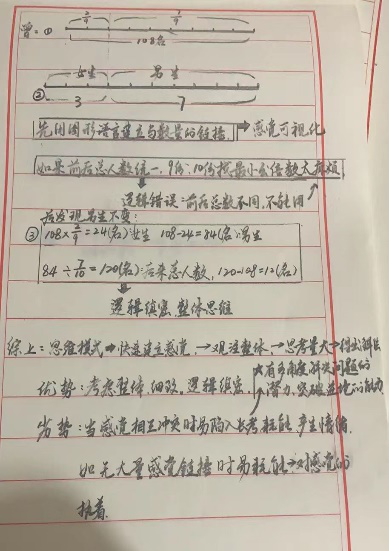 曾:① 2/9 7/9
108名
女生 男生
② 3 7
先用图形语言建立与数量的链接 → 感觉可视化
如果前后总人数统一,9份,10份找最小公倍数太麻烦
逻辑错误:前后总数不同,不能用
后发现男生不变:
③ 108×2/9=24(名):女生 108-24=84(名):男生
84÷7/10=120(名):后来总人数,120-108=12(名)
逻辑缜密,整体思维
综上:思维模式→快速建立感觉→观注整体→思考量大→得出解法
优势:考虑整体,细致,逻辑缜密,
有多角度解决问题的
潜力,突破
劣势:当感觉相互冲突时易陷入长考耗能,产生情绪.
如无大量感觉链接时易耗能→对感觉的
执着.